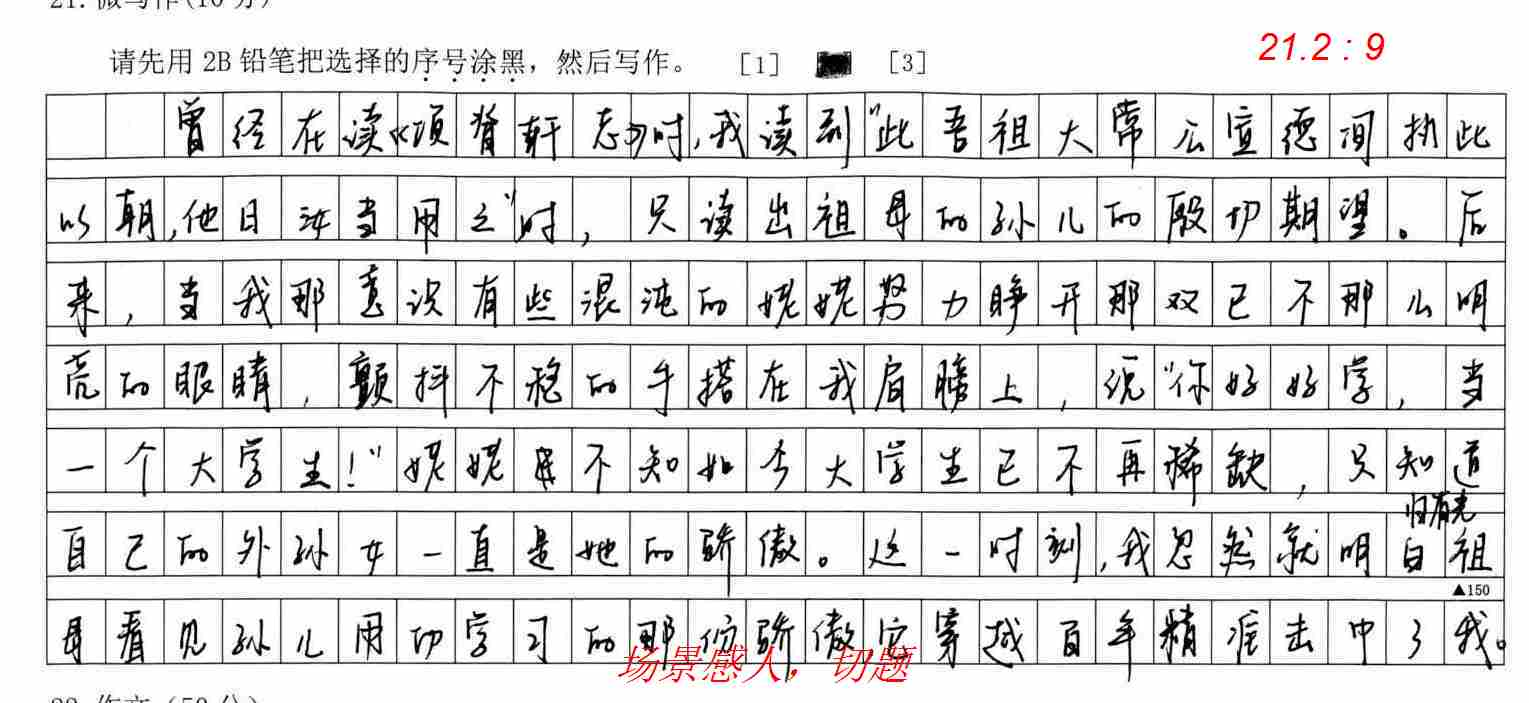 21. 微写作(10分)
请先用 2B 铅笔把选择的序号涂黑，然后写作。 [1] [3]
21.2 : 9
曾经在读《项脊轩志》时,我读到"此吾祖太常公宣德间执此
以朝,他日汝当用之"时，只读出祖母的孙儿的殷切期望。后
来，当我那意识有些混沌的姥姥努力睁开那双已不那么明
亮的眼睛，颤抖不稳的手搭在我肩膀上，说"你好好学，当
一个大学生！"姥姥不知如今大学生已不再稀缺，只知道
自己的外孙女一直是她的骄傲。这一时刻,我忽然就明白归有光祖
▲150
母看见孙儿用功学习的那份骄傲它穿越百年精准击中了我。
场景感人，切题